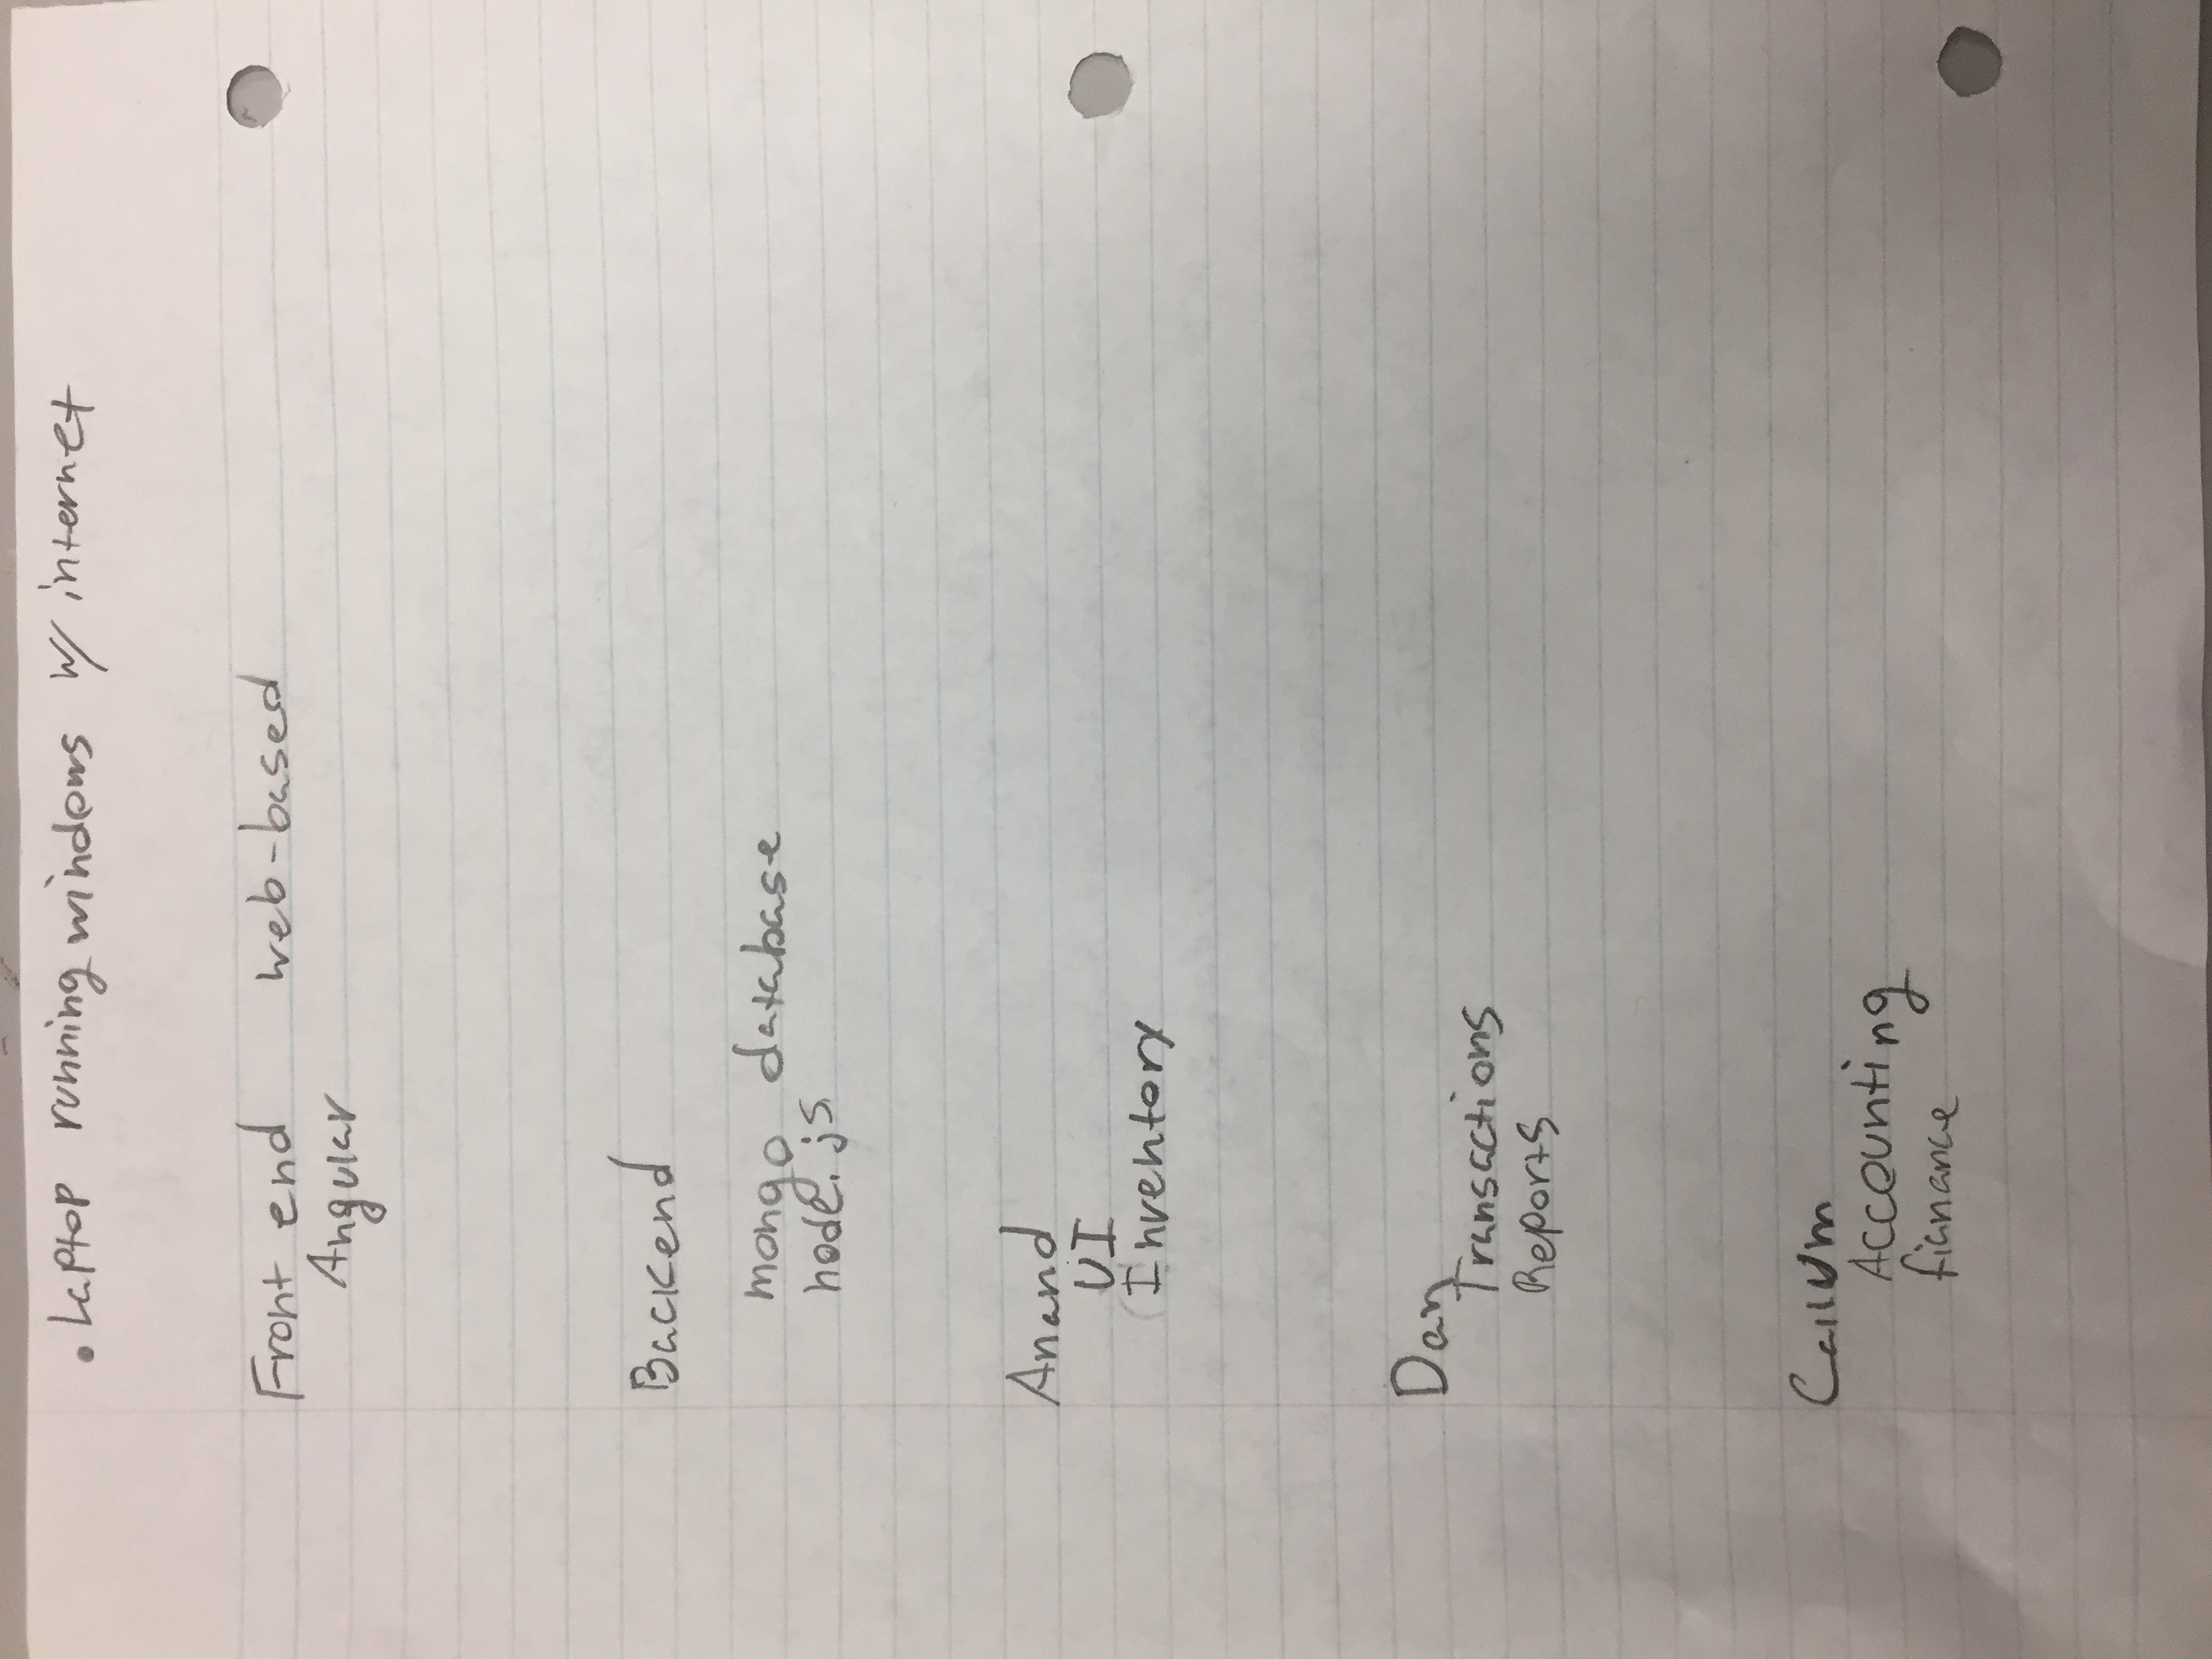 • Laptop running windows w/ internet
Front end web-based
Angular
Backend
mongo database
node.js
Anand
UI
Inventory
Dan
Transactions
Reports
Callum
Accounting
finance